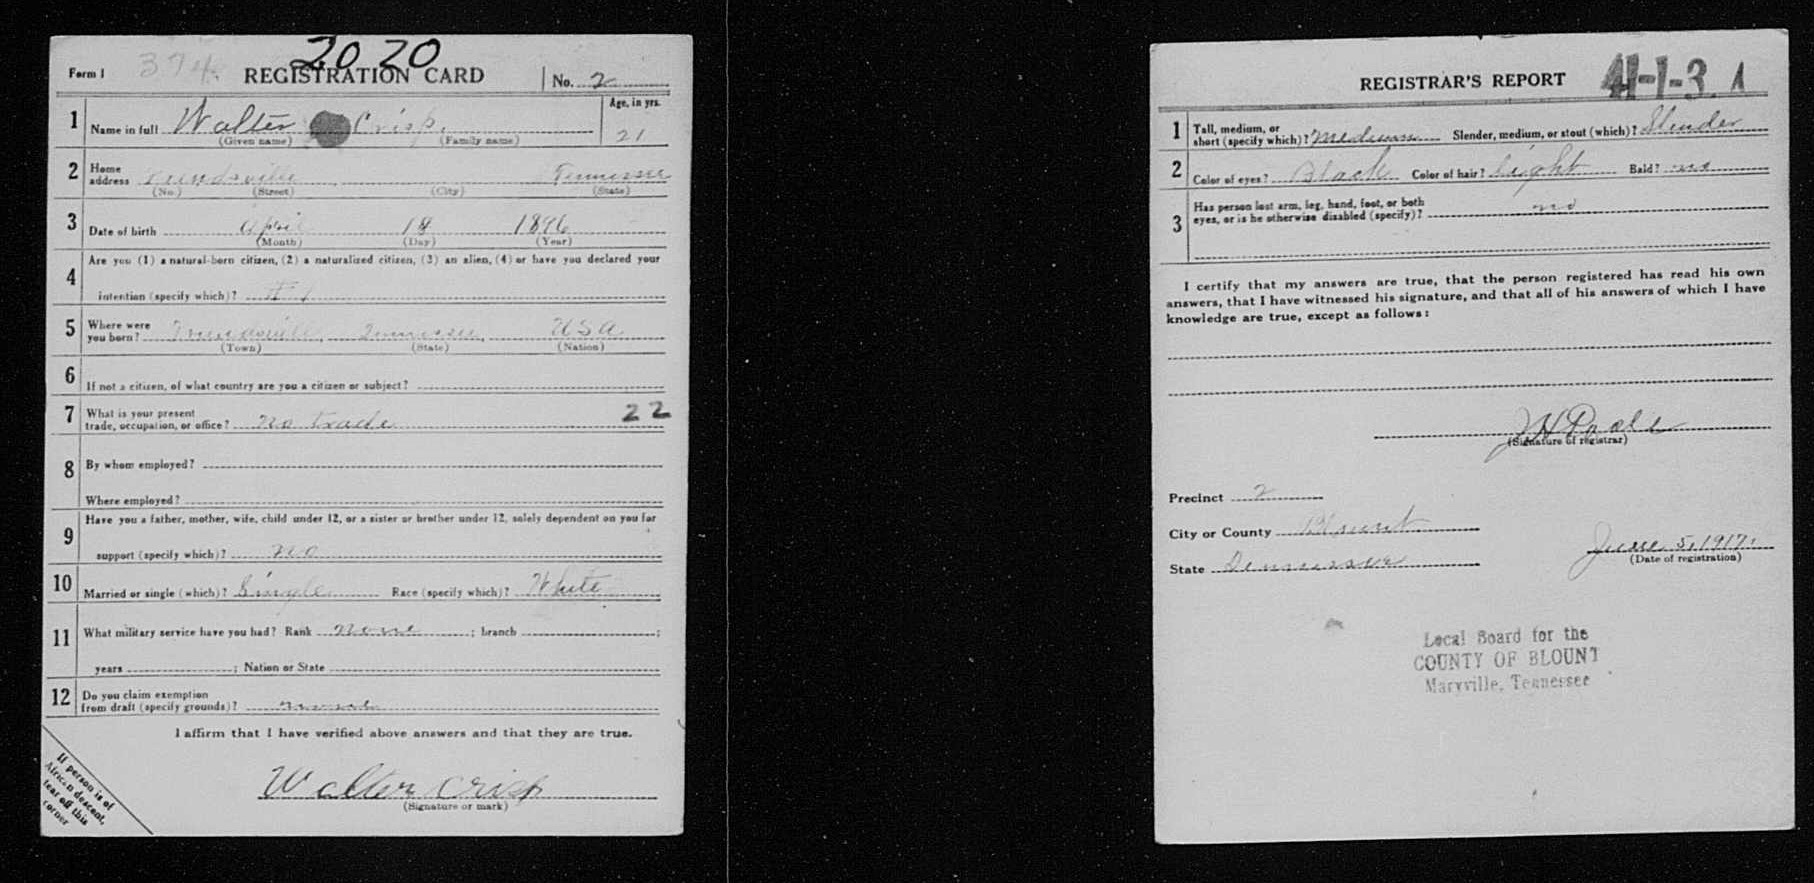 374
20 20
Form 1 REGISTRATION CARD No. 2
1 Name in full Walter Crisp. Age, in yrs. 21
(Given name) (Family name)
2 Home address Tennessee
(No.) (Street) (City) (State)
3 Date of birth April 18 1896
(Month) (Day) (Year)
4 Are you (1) a natural-born citizen, (2) a naturalized citizen, (3) an alien, (4) or have you declared your
intention (specify which)? #1
5 Where were you born? Tennessee, USA
(Town) (State) (Nation)
6 If not a citizen, of what country are you a citizen or subject?
7 What is your present trade, occupation, or office? no trade 22
8 By whom employed?
Where employed?
9 Have you a father, mother, wife, child under 12, or a sister or brother under 12, solely dependent on you for
support (specify which)? no
10 Married or single (which)? Single Race (specify which)? White
11 What military service have you had? Rank none ; branch ;
years ; Nation or State
12 Do you claim exemption from draft (specify grounds)? none
I affirm that I have verified above answers and that they are true.
Walter Crisp
(Signature or mark)
If person is of
African descent,
tear off this
corner
REGISTRAR'S REPORT 41-1-3. A
1 Tall, medium, or short (specify which)? Medium Slender, medium, or stout (which)? Slender
2 Color of eyes? Black Color of hair? Light Bald? no
3 Has person lost arm, leg, hand, foot, or both
eyes, or is he otherwise disabled (specify)? no
I certify that my answers are true, that the person registered has read his own
answers, that I have witnessed his signature, and that all of his answers of which I have
knowledge are true, except as follows:
(Signature of registrar)
Precinct 2
City or County Blount
State Tennessee
June 5, 1917.
(Date of registration)
Local Board for the
COUNTY OF BLOUNT
Maryville, Tennessee